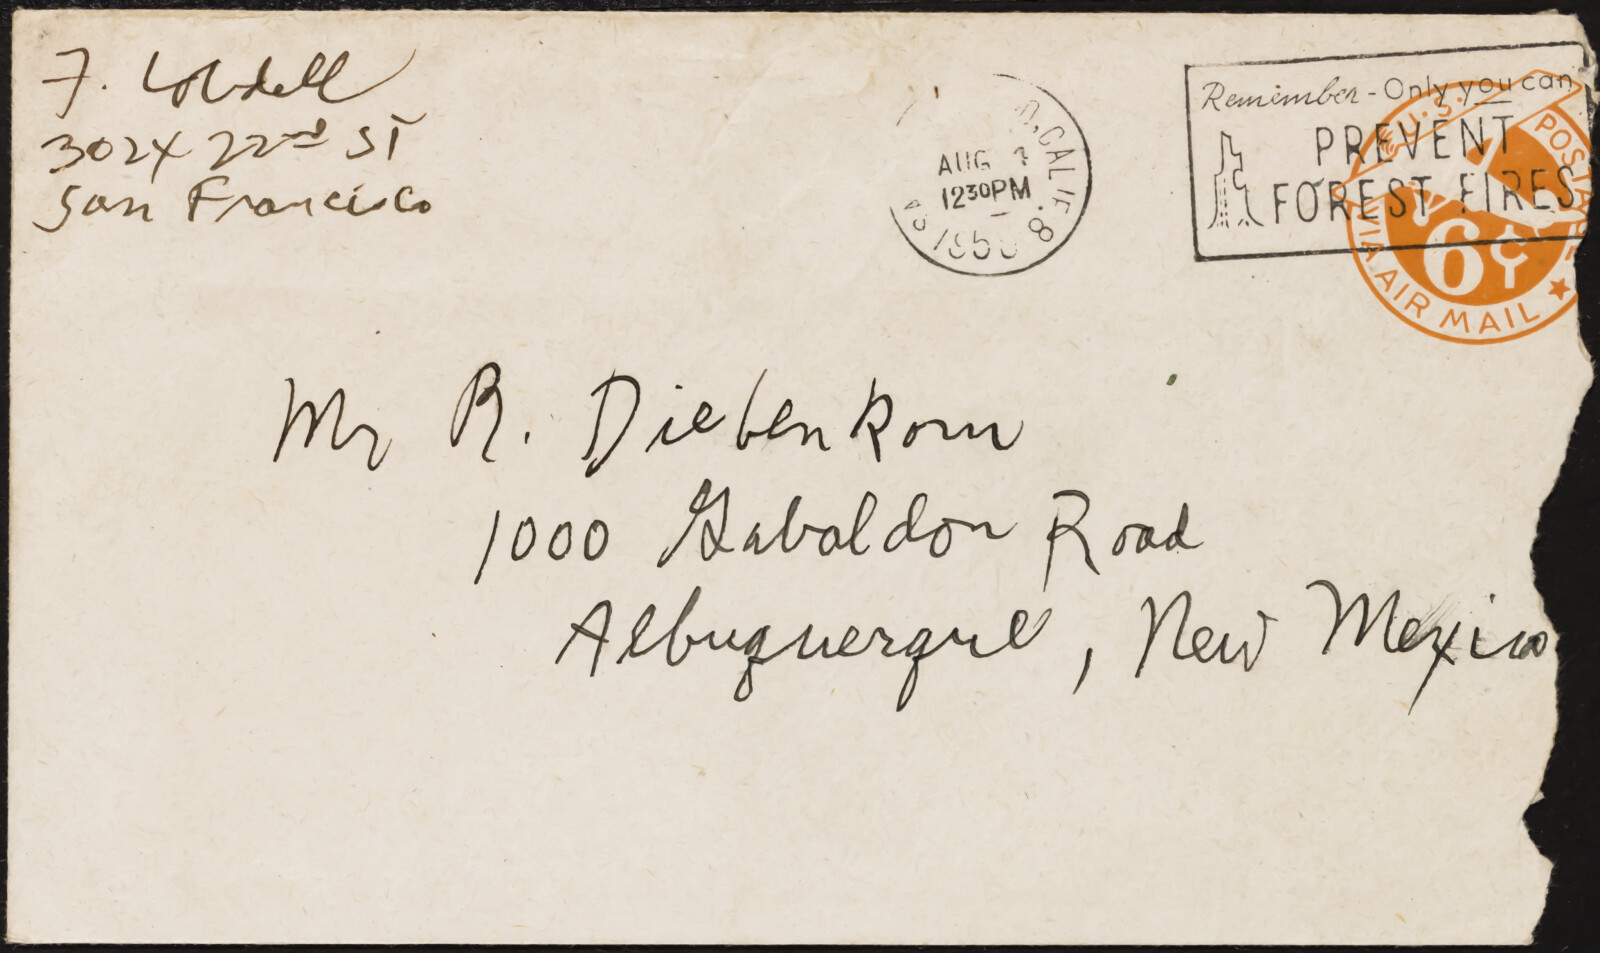 F. Lobdell
302X 22nd ST
San Francisco
AUG
1230PM
CALIF. 8
195
Remember - Only you can
PREVENT
FOREST FIRES
U.S. POSTAGE
6¢
VIA AIR MAIL
Mr R. Diebenkorn
1000 Gabaldon Road
Albuquerque, New Mexico